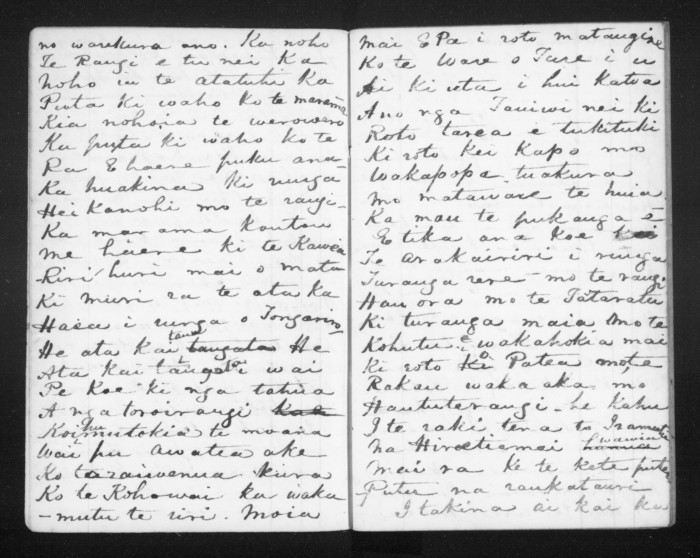 no warekura ano. Ka noho
Te Rangi e tu nei Ka
noho iu te atatuhi Ka
Puta ki waho ko te marama
Kia nohoia te werowero
Ka puta ki waho ko te
Ra E haere puku ana
Ka huakina ki runga
Hei Kanohi mo te rangi-
Ka marama koutou
me haere ki te Kawea
Riri huri mai o mata
Ki muri ra te ata ka
Hasa i runga o Tongariro
He ata kai tau tangata He
Ata kai tangata i wai
Pe Koe ki nga tahua
A nga toroirangi
te moana
Wai pu awatea ake
Ko taraiwenua kura
Ko te Kohowai ka waka
-mutu te riri. Moia
mai E Pa i roto matangi
Ko te Ware o Ture i u
Ai ki uta i hui katoa
Ano nga Tauiwi nei ki
Roto tarea e tukituki
Ki roto kei Kapo mo
Wakapopo tuakura
mo mataware te huia
Ka mau te pukanga e
E tika ana koe
Te Arakairiri i runga
Turanga rere - mo te rangi
Hau ora mo te Tataratu
Ki turanga maia. Mo te
Kohutu e wakahokia mai
Ki roto o Patea mo te
Rakau waka aka mo
Haututerangi - he kahu
I te raki tera to Iramutu
Na Hinetiemai wawiri
mai ra Ki te kete puten
Putu na raukatauri
I takina ai kai ka